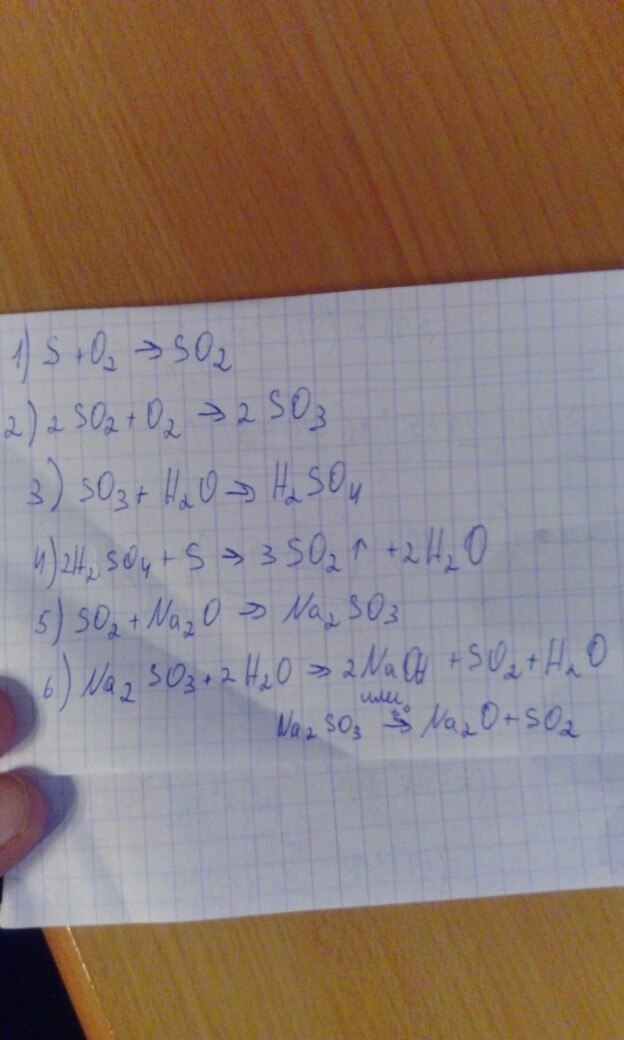 1) S + O₂ → SO₂
2) 2 SO₂ + O₂ → 2 SO₃
3) SO₃ + H₂O → H₂SO₄
4) 2H₂SO₄ + S → 3 SO₂↑ + 2H₂O
5) SO₂ + Na₂O → Na₂SO₃
6) Na₂SO₃ + 2H₂O → 2NaOH + SO₂ + H₂O
или
Na₂SO₃ →t° Na₂O + SO₂